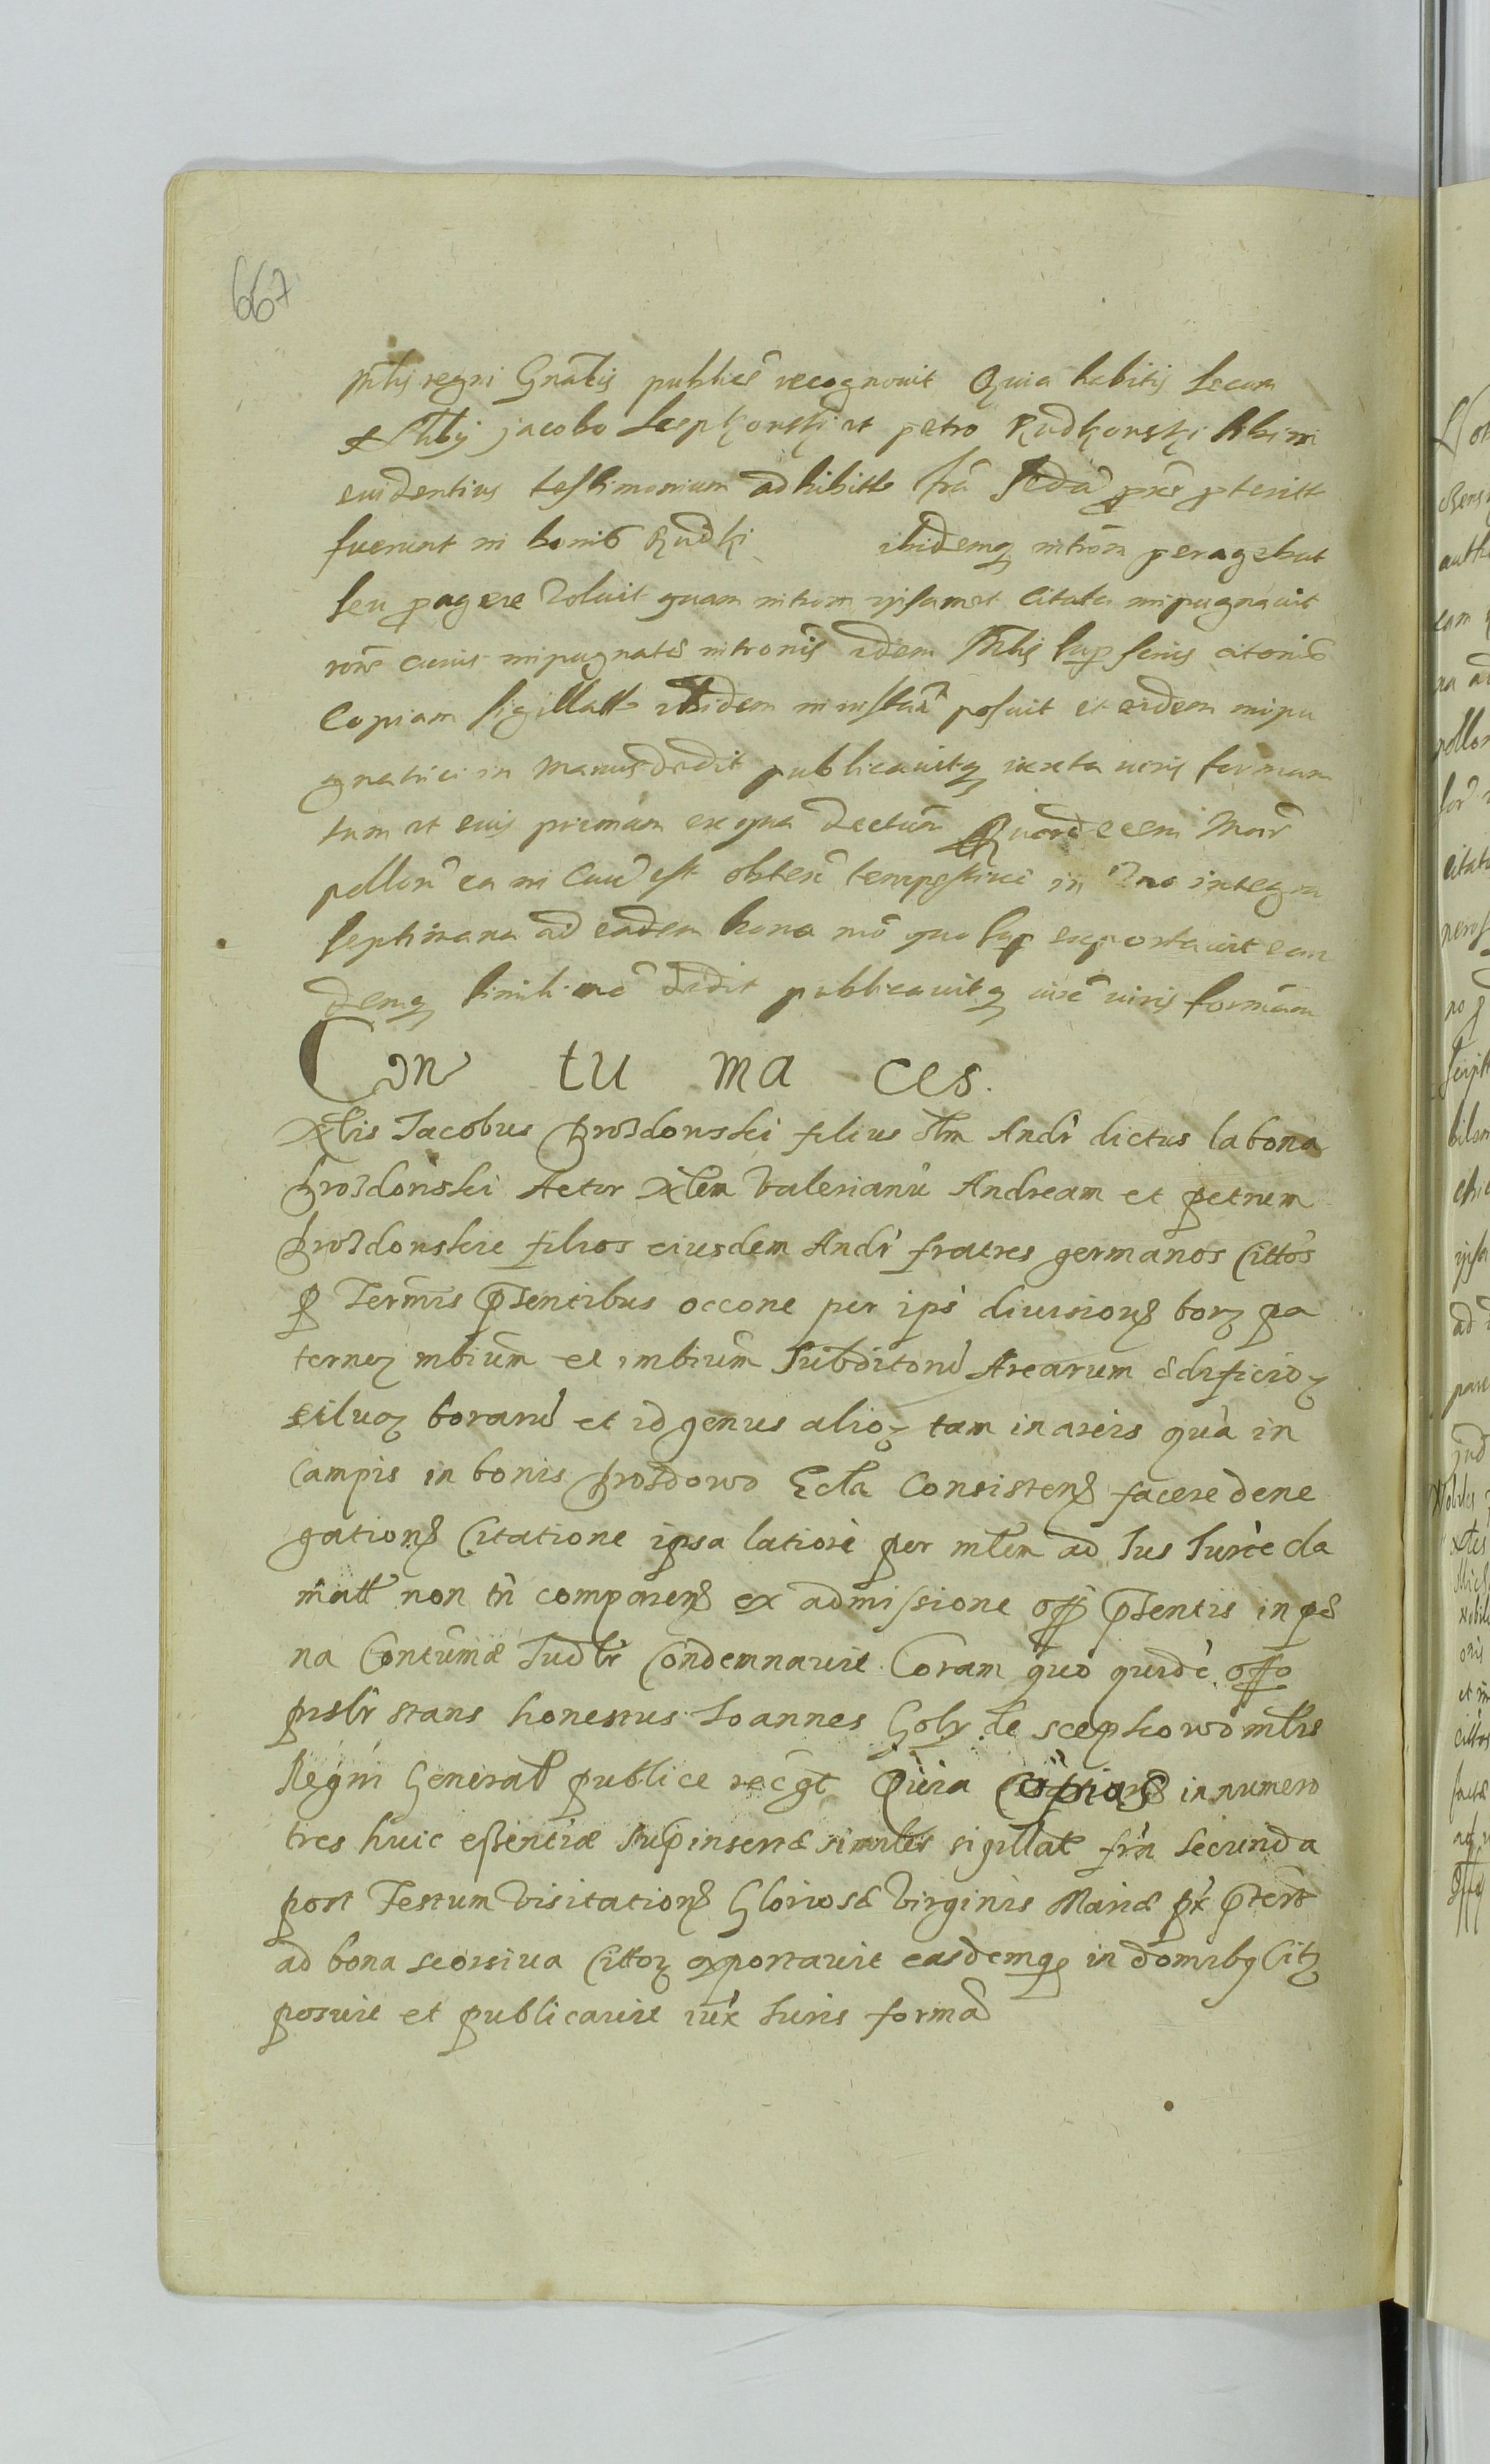 667
regni Gnalis publice recognouit Quia habitis secum
Jacobo Sczepkowski et petro Rudkowski sibi in
euidentius testimonium adhibitt fria 2da prx pteritt
fuerunt in bonis Rudki ibidemq introm peragebat
seu pagere voluit quam introm ipsamet citata impugnauit
rone cuius impugnatae intronis idem sup citonis
Copiam sigillatt ibidem posuit et eidem impu
gnatrici in manus dedit publicauitq iuxta iuris formam
tum et eius primam ex qua Quordecem Mar
pollon ea in est obten tempestiue in integra
septimana ad eadem bona mo quo sup exportauit ean
demq simili mo dedit publicauitq iuris formam
Con tu ma ces.
Nlis Jacobus Drozdowski filius olm Andr dictus labona
Drozdowski Actor Nlem Valerianu Andream et petrum
Drozdowskie filios eiusdem Andr fratres germanos Cittos
p Termis psentibus occone per ips diuisionis bor pa
ternor mbium et imbium Subditoru Arearum edificior
siluar boraru et id genus alior tam in areis qua in
Campis in bonis Drozdowo Ecla Consisten facere dene
gationis Citatione ipsa latiore per mlem ad Jus Jurte cla
matt non tn comparen ex admissione offi psentis in pe
na Contumae Judlr Condemnauit Coram quo quide offo
prslr stans honestus Joannes Goly de sczepkowo mlis
Regni General publice recgt Quia Copias in numero
tres huic essentiae supinserte similes sigillat fria secunda
post Festum Visitationis Gloriose Virginis Marie px pterit
ad bona seorsiua Cittor exportauit easdemq in domibq Cit
posuit et publicauit iux Juris forma